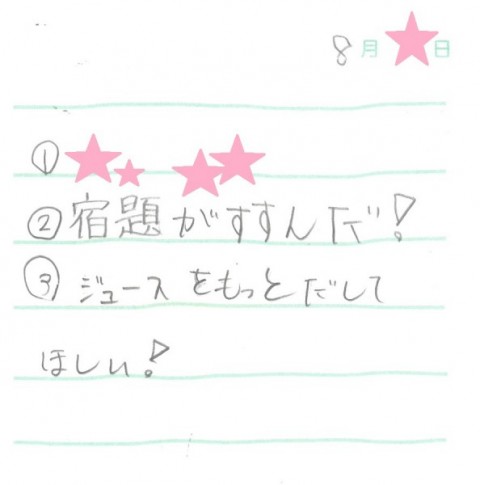 8月 日
①
②宿題がすすんだ!
③ジュースをもっとだして
ほしい!